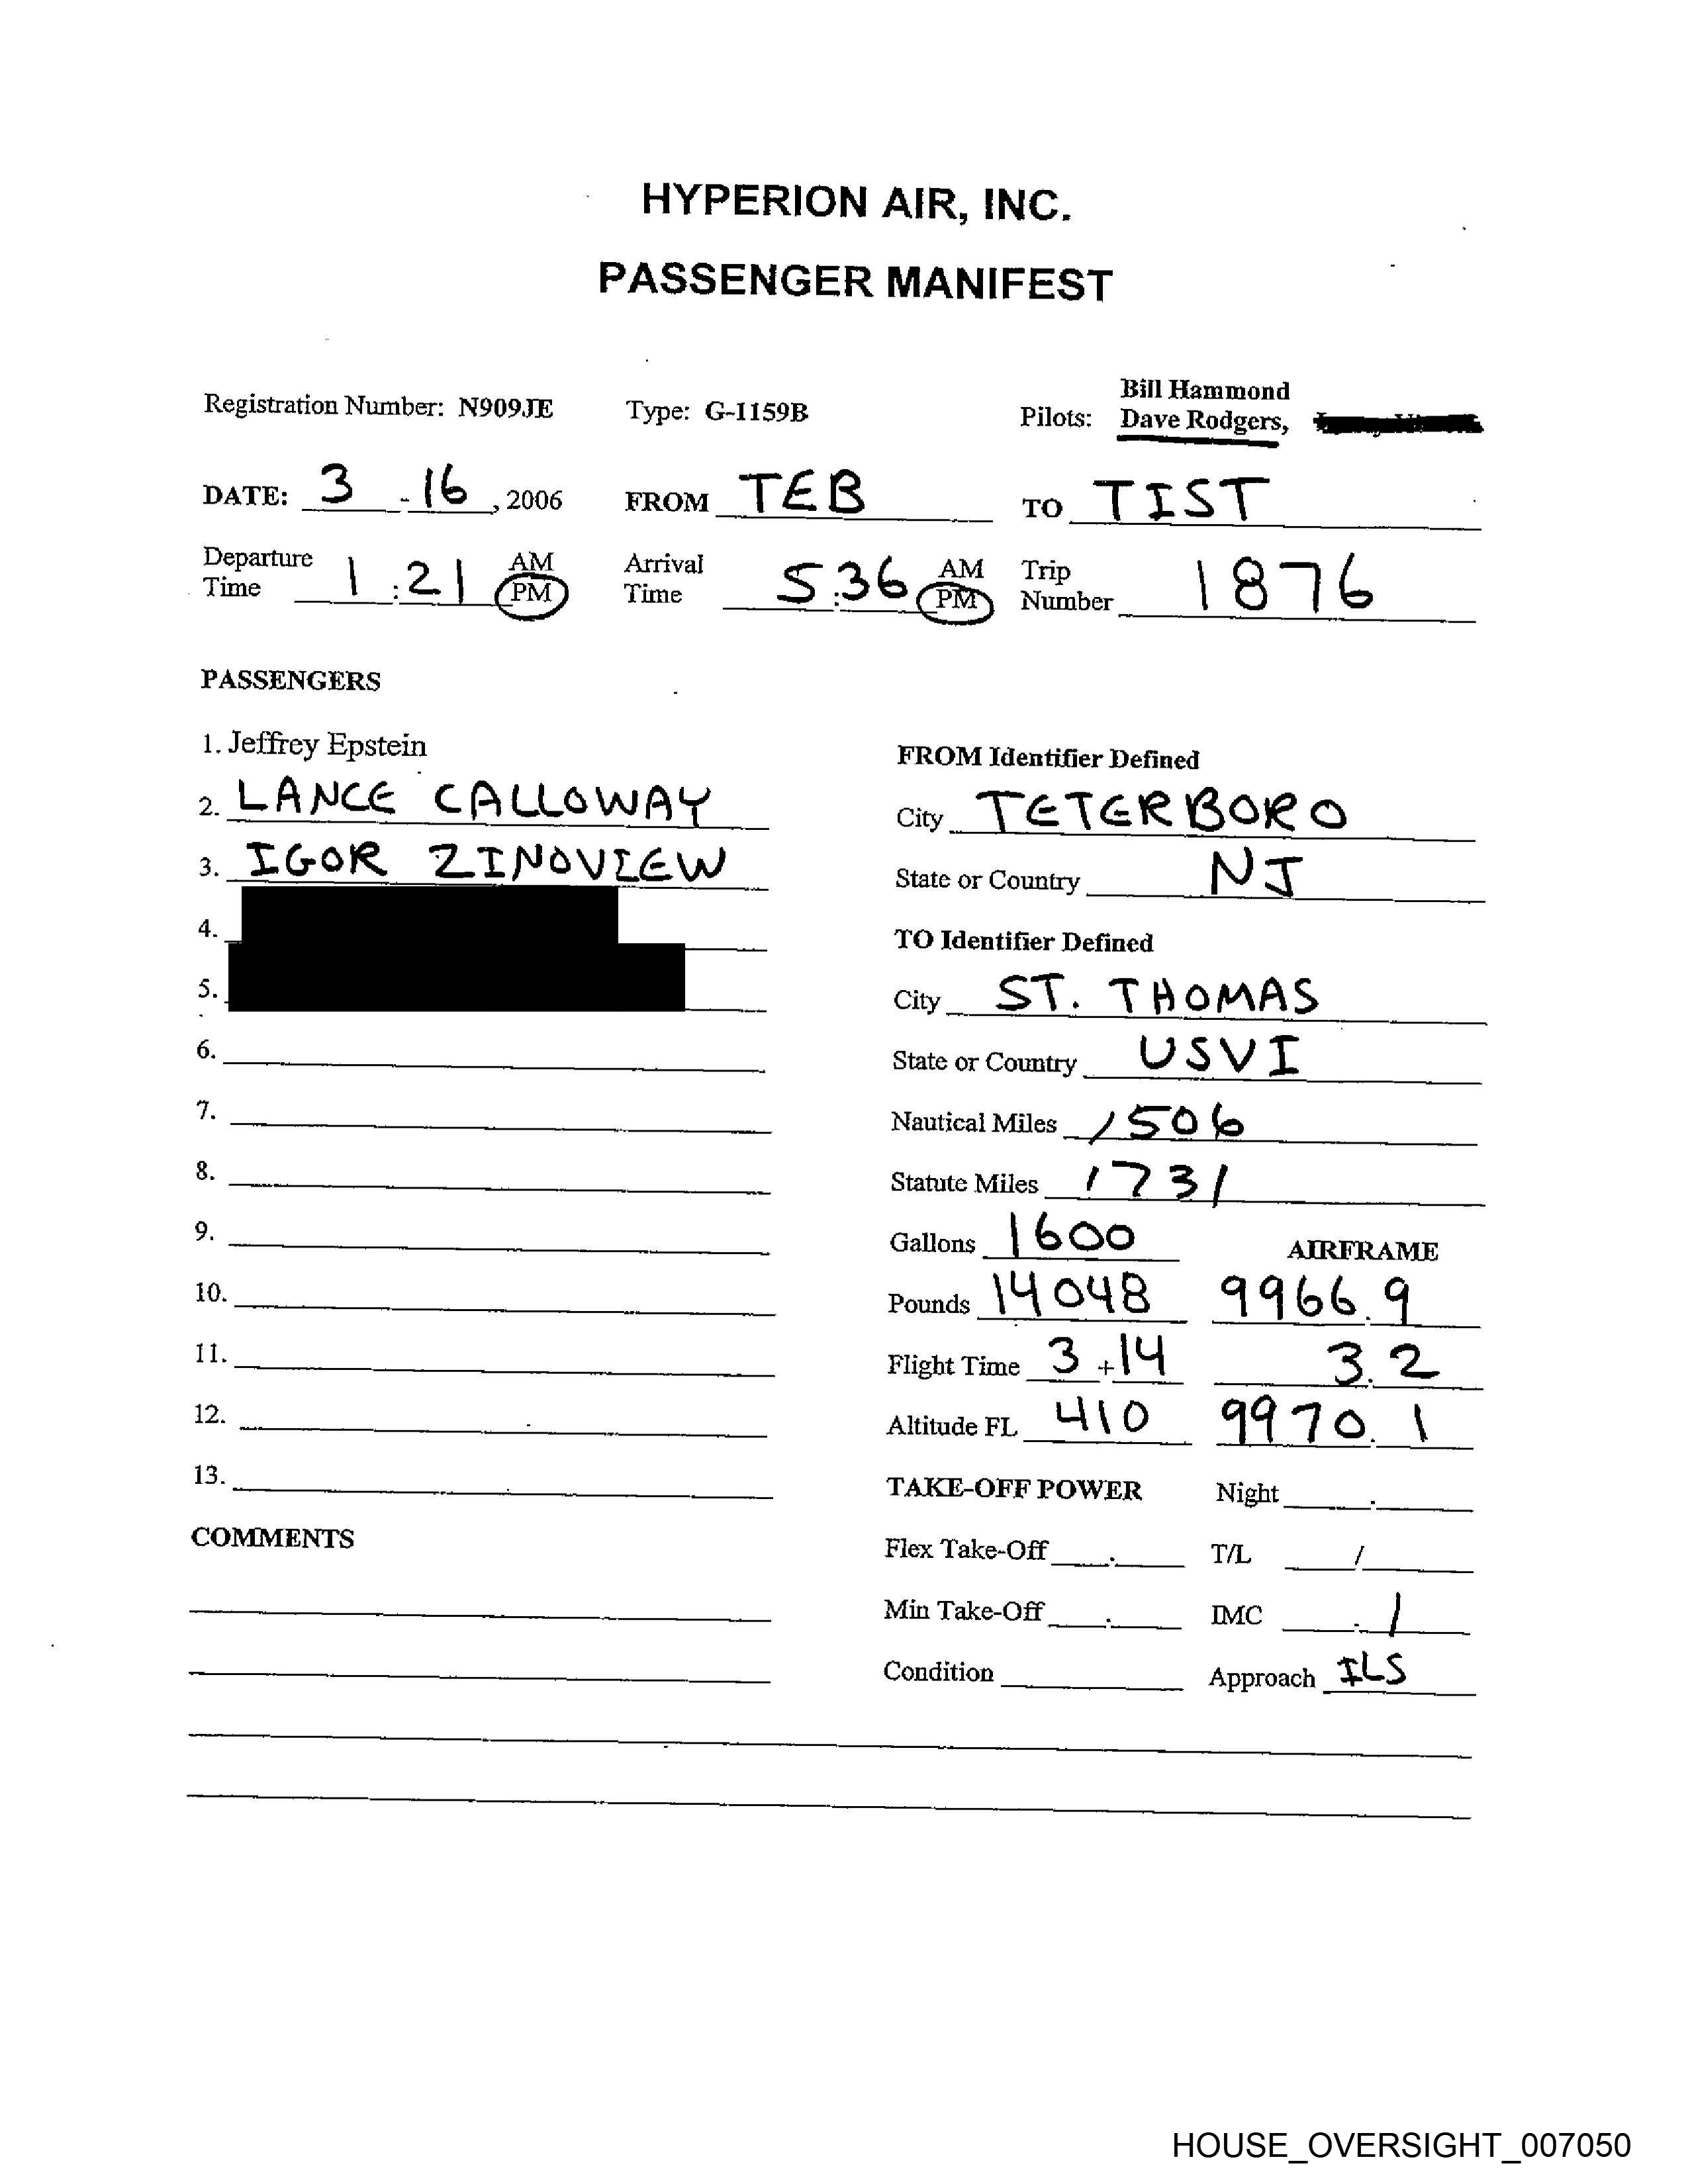 HYPERION AIR, INC.
PASSENGER MANIFEST
Bill Hammond
Registration Number: N909JE Type: G-1159B Pilots: Dave Rodgers,
DATE: 3 - 16, 2006 FROM TEB TO TIST
Departure Time 1:21 AM PM Arrival Time 5:36 AM PM Trip Number 1876
PASSENGERS
1. Jeffrey Epstein
2. LANCE CALLOWAY
3. IGOR ZINOVIEW
4.
5.
6.
7.
8.
9.
10.
11.
12.
13.
COMMENTS
FROM Identifier Defined
City TETERBORO
State or Country NJ
TO Identifier Defined
City ST. THOMAS
State or Country USVI
Nautical Miles 1506
Statute Miles 1731
Gallons 1600 AIRFRAME
Pounds 14048 9966.9
Flight Time 3+14 3.2
Altitude FL 410 9970.1
TAKE-OFF POWER Night .
Flex Take-Off . T/L /
Min Take-Off . IMC .1
Condition Approach ILS
HOUSE_OVERSIGHT_007050